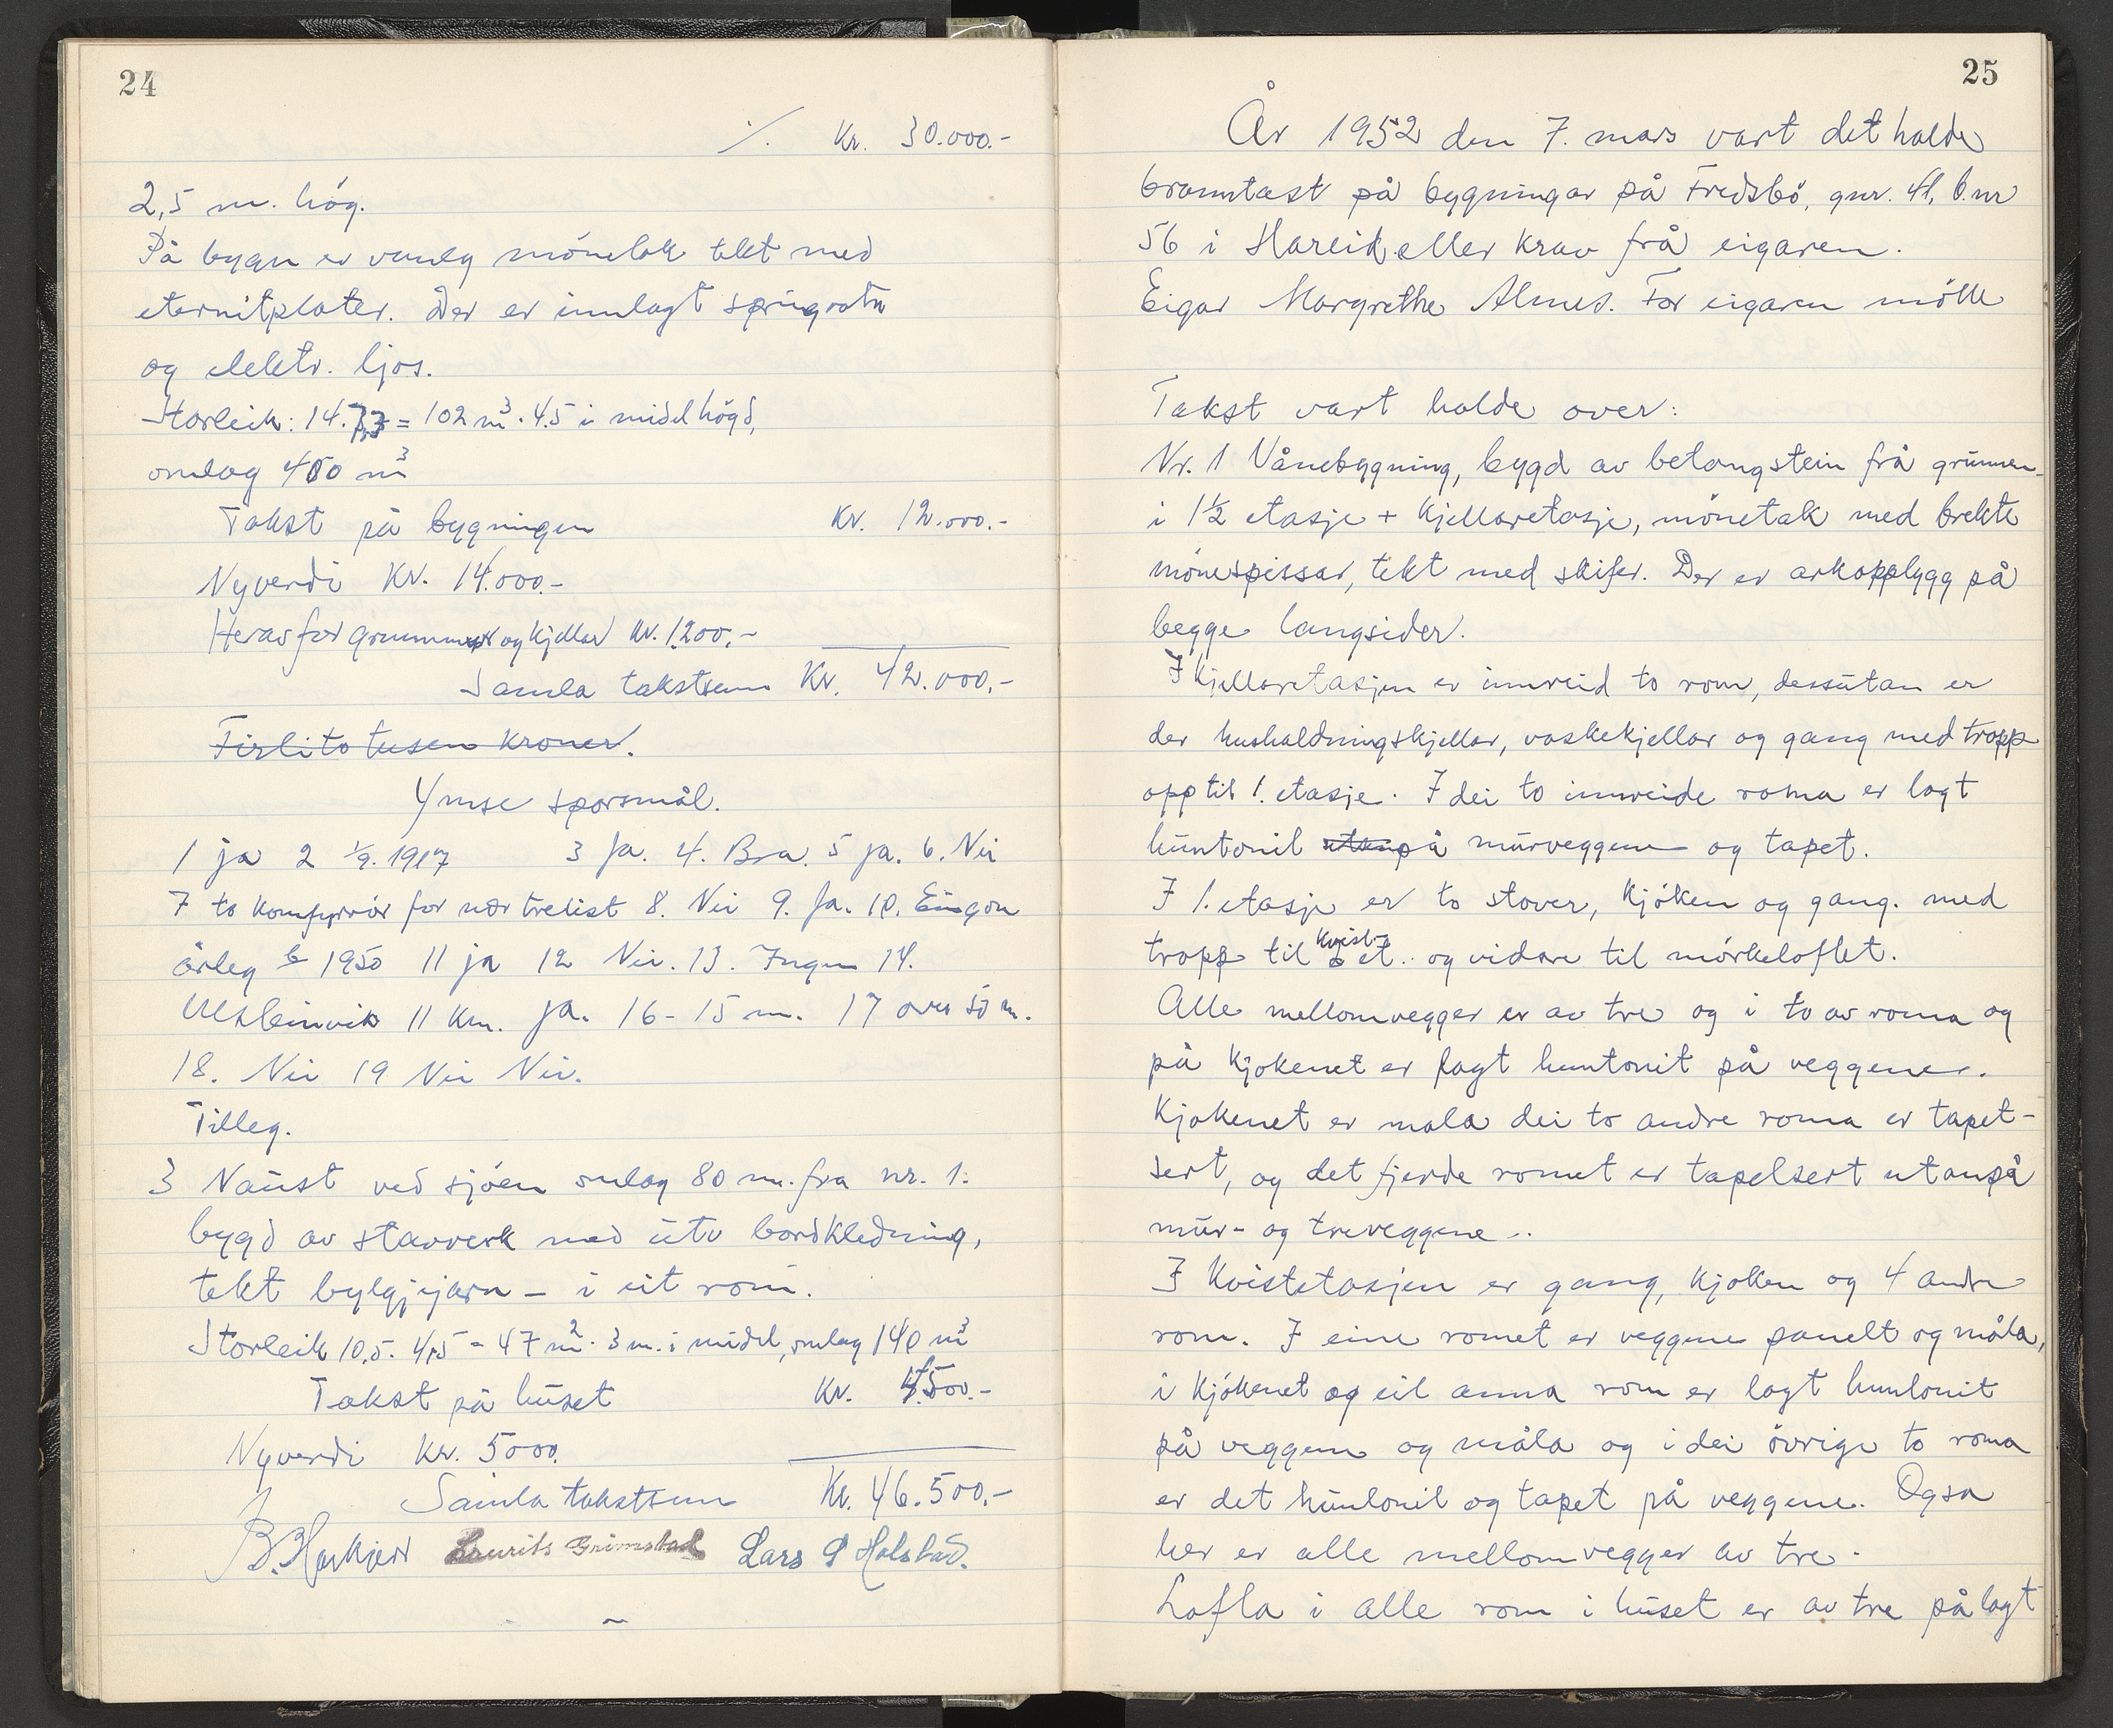 24
./. Kr. 30.000.-
2,5 m. hög.
På bygn er vanleg mönetak tekt med
eternitplater. Der er innlagt springvatn
og elektr. ljos.
Storleik: 14.7,3 = 102 m³. 4.5 i midel högd,
omlag 450 m³
Takst på bygningen Kr. 12.000.-
Nyverdi Kr. 14.000.-
Herav for grunnmur og kjellar Kr. 1200.-
Samla takstsum Kr. 42.000.-
Firti to tusen kroner.
Ymse spörsmål.
1 ja 2 1/9. 1917 3 Ja. 4. Bra. 5 ja. 6. Nei
7 to komfyrrör for nær trelist 8. Nei 9. Ja. 10. Eingon
årleg b 1950 11 ja 12 Nei. 13. Ingen 14.
Ulsteinvik 11 km. Ja. 16 - 15 m. 17 over 50 m.
18. Nei 19 Nei Nei.
Tilleg.
3 Naust ved sjöen omlag 80 m. fra nr. 1.
bygd av stavverk med utv bordkledning,
tekt bylgjejarn - i eit rom.
Storleik 10,5. 4,5 = 47 m². 3 m. i midel, omlag 140 m³
Takst på huset Kr. 4500.-
Nyverdi Kr. 5000.
Samla takstsum Kr. 46.500.-
B. Haskjer Laurits Grimstad Lars P Holstad.
25
År 1952 den 7. mars vart det halde
branntakst på bygningar på Fredsbö, gnr. 41, b.nr
56 i Hareid eller krav frå eigaren.
Eigar Margrethe Almes. For eigaren mötte
Takst vart halde over:
Nr. 1 Vånebygning, bygd av betongstein frå grunnen
i 1½ etasje + kjellaretasje, mönetak med brekte
mönespissar, tekt med skifer. Der er arkopplygg på
begge langsider.
I kjellaretasjen er innreid to rom, dessutan er
der hushaldningskjellar, vaskekjellar og gang med tropp
opp til 1. etasje. I dei to innreide roma er lagt
huntonit utanpå murveggene og tapet.
I 1. etasje er to stover, kjöken og gang. med
tropp til kvist- et. og vidare til mörkeloftet.
Alle mellomvegger er av tre og i to av roma og
på kjokenet er lagt huntonit på veggene.
Kjokenet er mala dei to andre roma er tapet-
sert, og det fjerde romet er tapetsert utanpå
mur- og treveggene.
I Kvistetasjen er gang, kjoken og 4 andre
rom. I eine romet er veggene panelt og måla,
i kjökenet og eit anna rom er lagt huntonit
på veggene og måla og i dei övrige to roma
er det huntonit og tapet på veggene. Ogsa
her er alle mellomvegger av tre.
Lofta i alle rom i huset er av tre pålagt